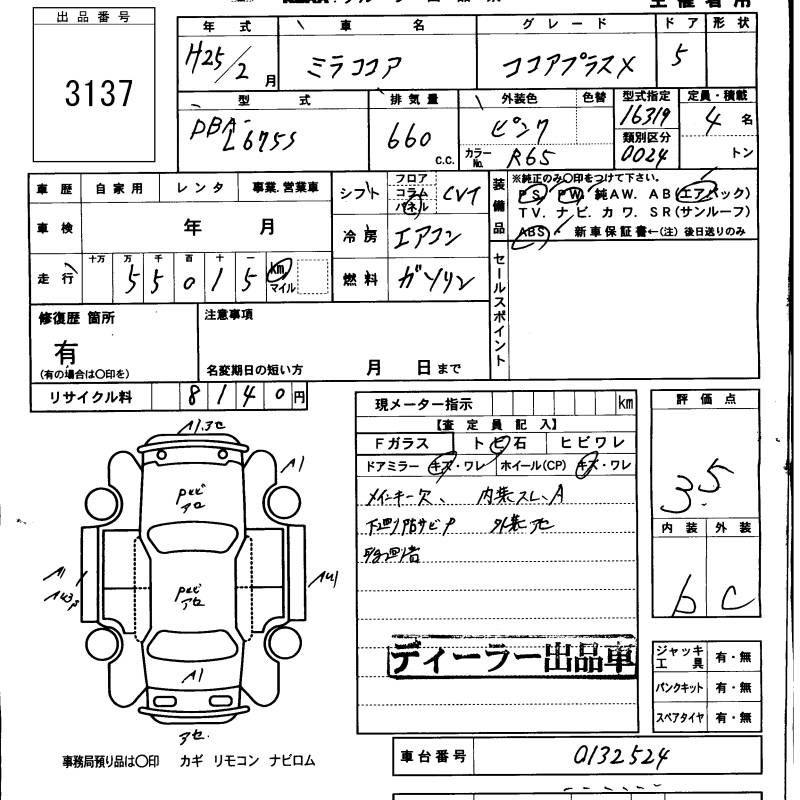 出品番号
3137
年式 車名 グレード ドア 形状
H25/2月 ミラココア ココアプラスX 5
型式 排気量 外装色 色替 型式指定 定員・積載
DBA-L675S 660 C.C. ピンク カラーNo. R65 16319 4名
類別区分 0024 トン
車歴 自家用 レンタ 事業.営業車
シフト フロア コラム パネル CVT
装備品 ※純正のみ〇印をつけて下さい。
PS. PW. 純AW. AB(エアバック)
TV. ナビ. カワ. SR(サンルーフ)
ABS) 新車保証書←(注) 後日送りのみ
車検 年 月
冷房 エアコン
走行 十万 万 千 百 十 一
55015 km マイル
燃料 ガソリン
セールスポイント
修復歴 箇所
有
(有の場合は〇印を)
注意事項
名変期日の短い方 月 日まで
リサイクル料 8140円
現メーター指示 km
【査定員記入】
Fガラス トビ石 ヒビワレ
ドアミラー キズ・ワレ ホイール(CP) キズ・ワレ
メインキー欠、 内装スレ、A
下廻りPサビP 外装
評価点
3.5
内装 外装
b C
ディーラー出品車
ジャッキ工具 有・無
パンクキット 有・無
スペアタイヤ 有・無
車台番号 0132524
A1
A1
A1
アセ.
事務局預り品は〇印 カギ リモコン ナビロム